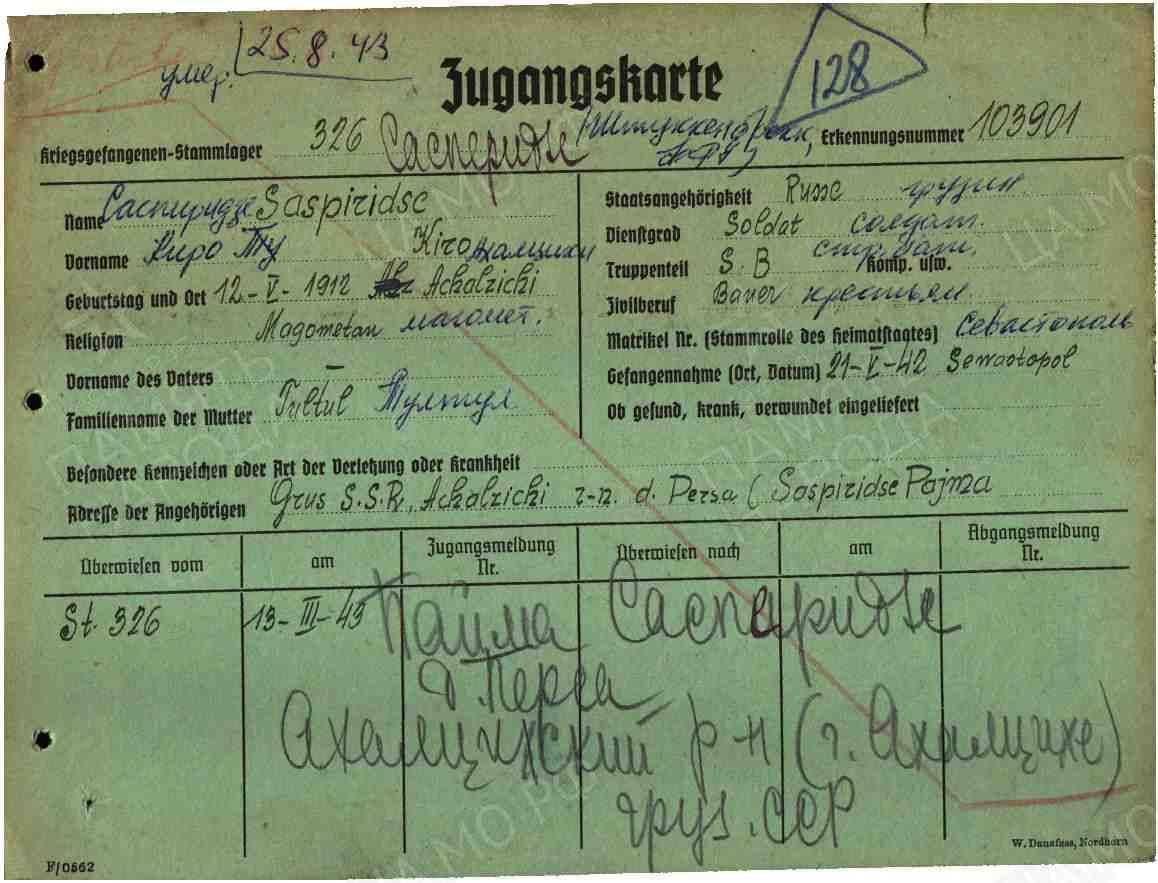 умер. 25.8.43
Zugangskarte
128
Kriegsgefangenen-Stammlager 326 Сасперидзе Erkennungsnummer 103901
Name Сасперидзе Saspiridse
Vorname Киро Kiro
Geburtstag und Ort 12-V-1912 Achalzichi
Religion Magometan магомет.
Vorname des Vaters –
Familienname der Mutter Tultul Тултул
Staatsangehörigkeit Russe грузин
Dienstgrad Soldat солдат.
Truppenteil S.B стр. бат. Komp. usw.
Zivilberuf Bauer крестьян.
Matrikel Nr. (Stammrolle des Heimatstaates) Севастополь
Gefangennahme (Ort, Datum) 21-V-42 Sewastopol
Ob gesund, krank, verwundet eingeliefert
Besondere Kennzeichen oder Art der Verletzung oder Krankheit
Adresse der Angehörigen Grus S.S.R, Achalzichi r-n. d. Persa ( Saspiridse Pajma
Überwiesen vom
am
Zugangsmeldung Nr.
Überwiesen nach
am
Abgangsmeldung Nr.
St. 326 13-III-43
Пайма Сасперидзе
д Перса
Ахалцихский р-н (г. Ахалцихе)
груз. ССР
W. Danafass, Nordhorn
F/0562